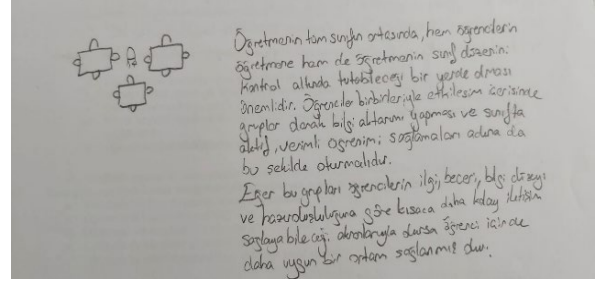 Öğretmenin tam sınıfın ortasında, hem öğrencilerin
öğretmene hem de öğretmenin sınıf düzenini
kontrol altında tutabileceği bir yerde olması
önemlidir. Öğrenciler birbirleriyle etkileşim içerisinde
gruplar olarak bilgi aktarımı yapması ve sınıfta
aktif, verimli öğrenimi sağlamaları adına da
bu şekilde oturmalıdır.
Eğer bu grupları öğrencilerin ilgi, beceri, bilgi düzeyi
ve hazırbulunuşluluğuna göre kısaca daha kolay iletişim
sağlayabileceği akranlarıyla olursa öğrenci için de
daha uygun bir ortam sağlanmış olur.